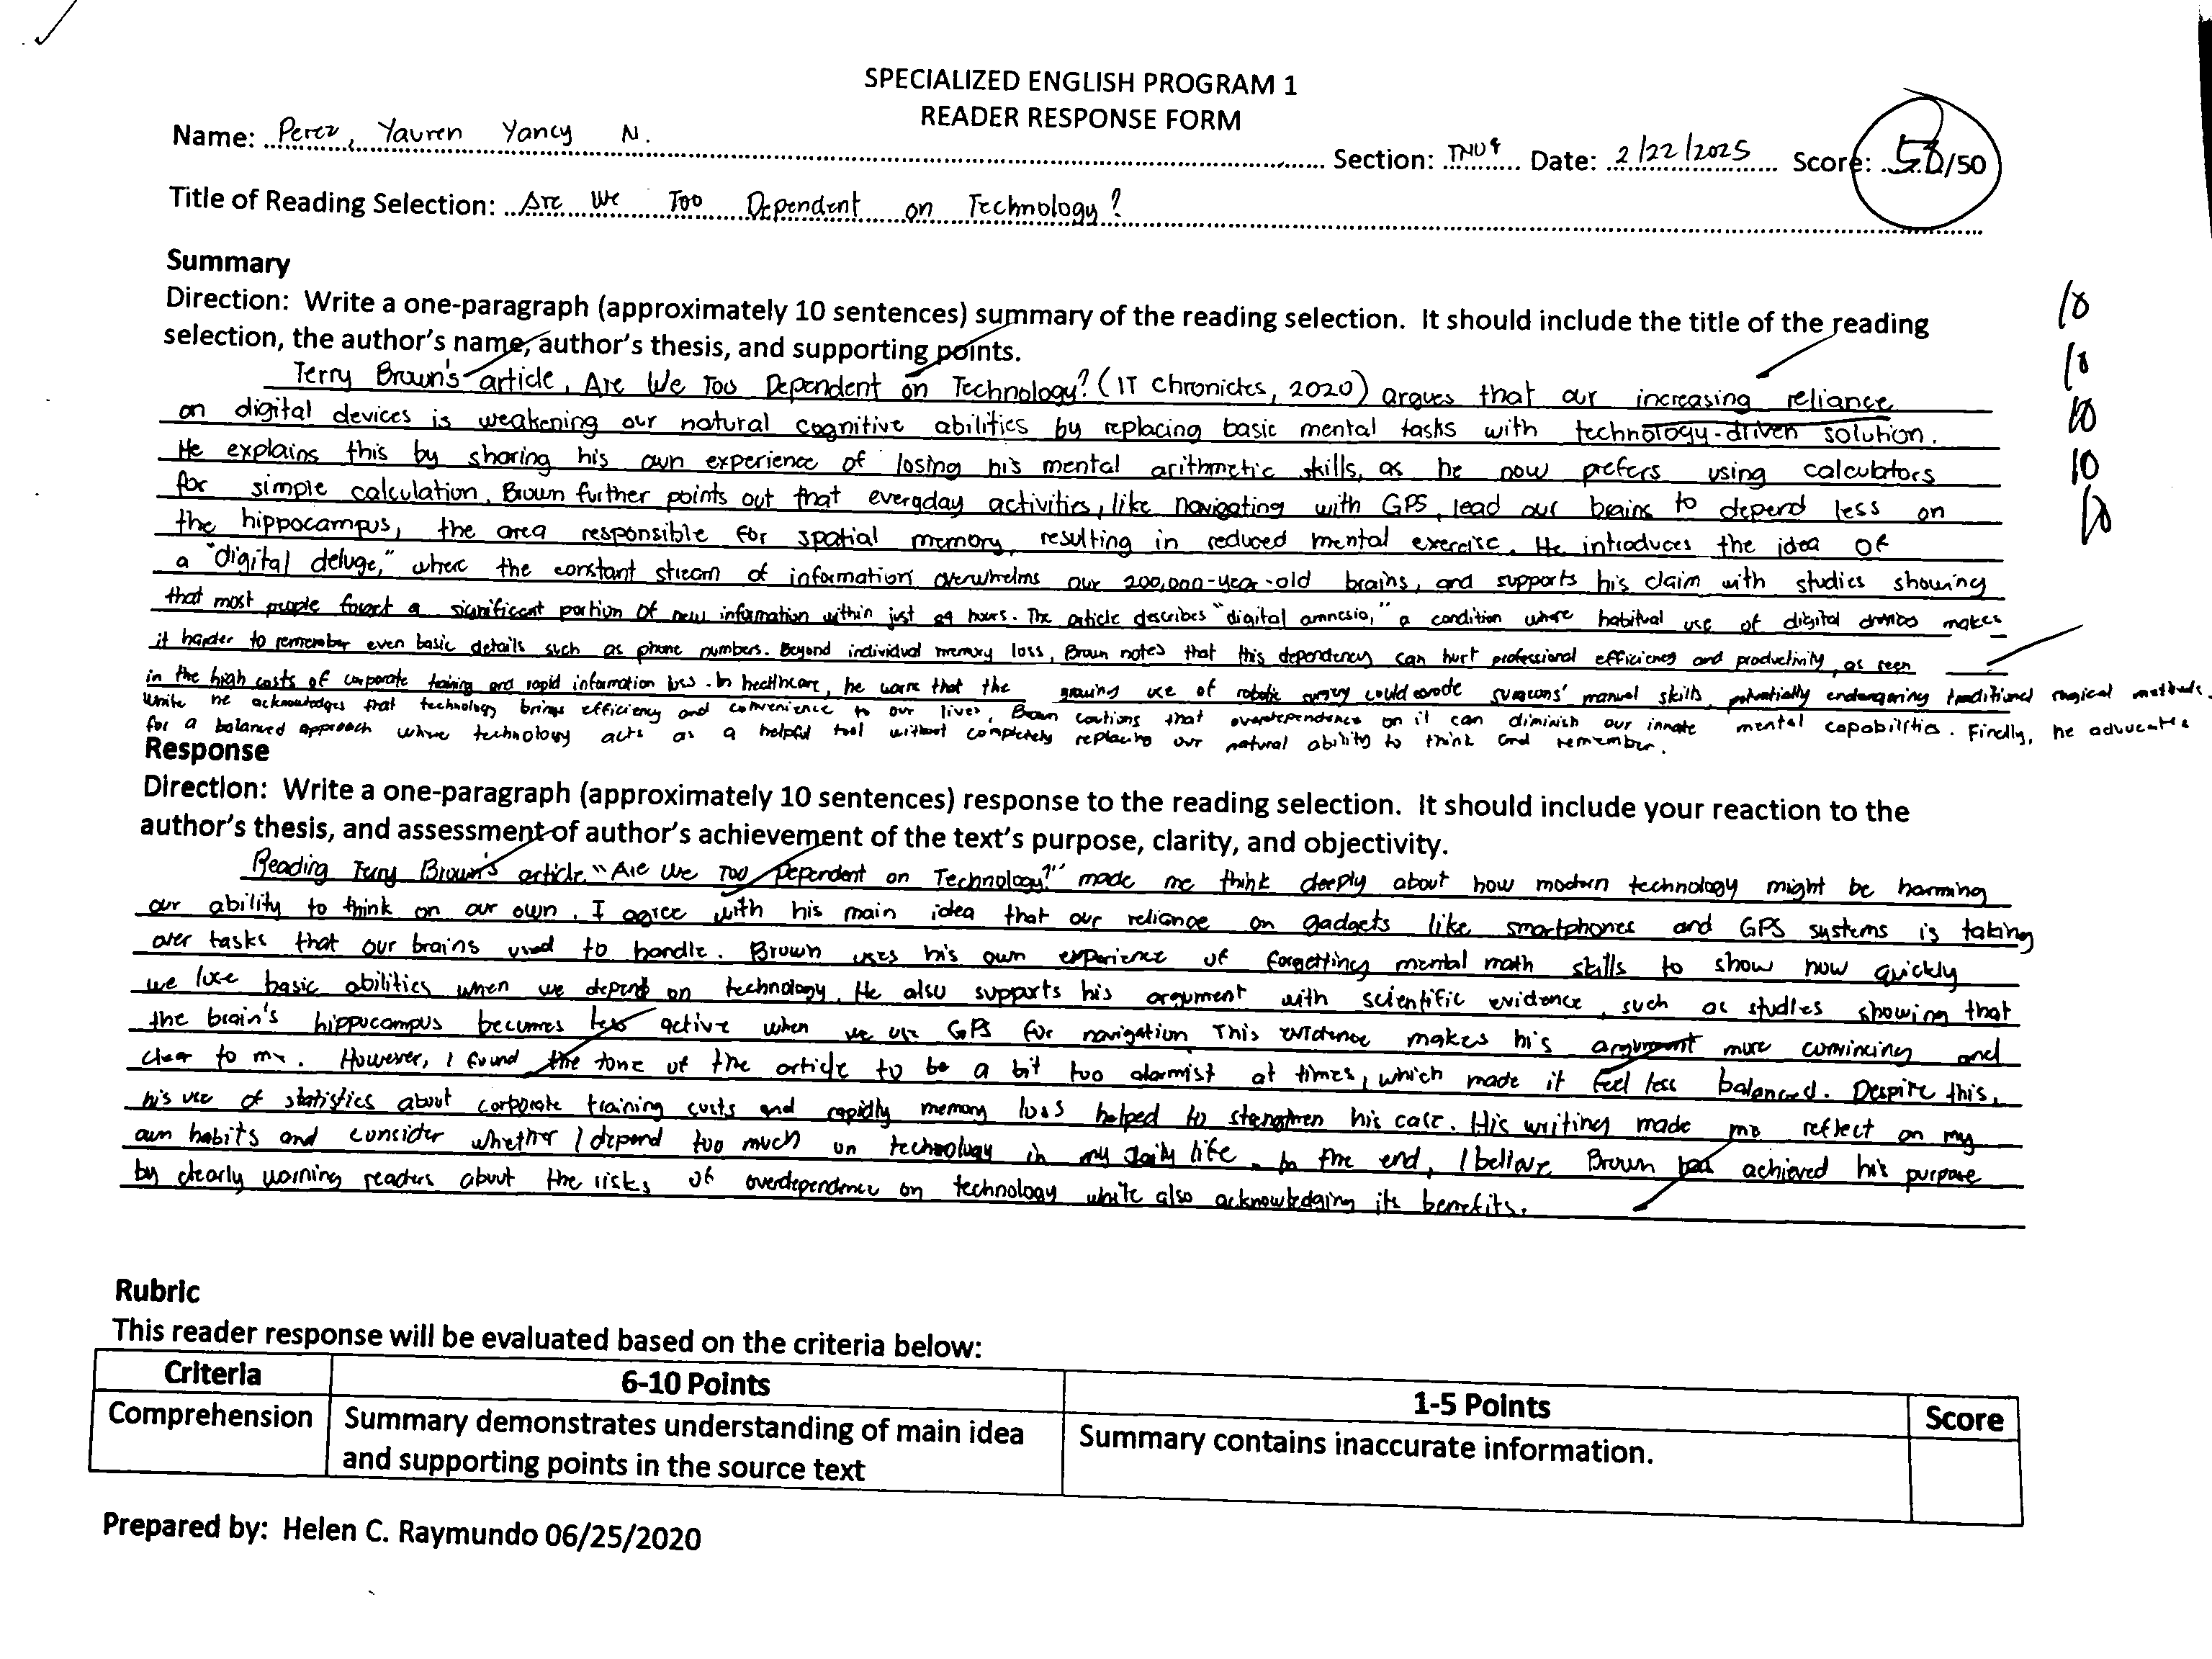 SPECIALIZED ENGLISH PROGRAM 1
READER RESPONSE FORM
Name: Perez, Yauren Yancy N. Section: Date: 2/22/2025 Score: /50
Title of Reading Selection: Are We Too Dependent on Technology?
Summary
Direction: Write a one-paragraph (approximately 10 sentences) summary of the reading selection. It should include the title of the reading
selection, the author's name, author's thesis, and supporting points.
10
10
10
10
10
Terry Brown's article, Are We Too Dependent on Technology? (IT Chronicles, 2020) argues that our increasing reliance
on digital devices is weakening our natural cognitive abilities by replacing basic mental tasks with technology-driven solution.
He explains this by sharing his own experience of losing his mental arithmetic skills, as he now prefers using calculators
for simple calculation. Brown further points out that everyday activities, like navigating with GPS, lead our brains to depend less on
the hippocampus, the area responsible for spatial memory, resulting in reduced mental exercise. He introduces the idea of
a "digital deluge," where the constant stream of information overwhelms our 200,000-year-old brains, and supports his claim with studies showing
that most people forget a significant portion of new information within just 24 hours. The article describes "digital amnesia," a condition where habitual use of digital devices makes
it harder to remember even basic details such as phone numbers. Beyond individual memory loss, Brown notes that this dependency can hurt professional efficiency and productivity, as seen
in the high costs of corporate training and rapid information loss. In healthcare, he warns that the growing use of robotic surgery could erode surgeons' manual skills, potentially endangering traditional surgical methods.
While he acknowledges that technology brings efficiency and convenience to our lives, Brown cautions that overdependence on it can diminish our innate mental capabilities. Finally, he advocates
for a balanced approach where technology acts as a helpful tool without completely replacing our natural ability to think and remember.
Response
Direction: Write a one-paragraph (approximately 10 sentences) response to the reading selection. It should include your reaction to the
author's thesis, and assessment of author's achievement of the text's purpose, clarity, and objectivity.
Reading Terry Brown's article "Are We Too Dependent on Technology?" made me think deeply about how modern technology might be harming
our ability to think on our own. I agree with his main idea that our reliance on gadgets like smartphones and GPS systems is taking
over tasks that our brains used to handle. Brown uses his own experience of forgetting mental math skills to show how quickly
we lose basic abilities when we depend on technology. He also supports his argument with scientific evidence, such as studies showing that
the brain's hippocampus becomes less active when we use GPS for navigation This evidence makes his argument more convincing and
clear to me. However, I found the tone of the article to be a bit too alarmist at times, which made it feel less balanced. Despite this,
his use of statistics about corporate training costs and rapidly memory loss helped to stengthen his case. His writing made me reflect on my
own habits and consider whether I depend too much on technology in my daily life. In the end, I believe Brown has achieved his purpose
by clearly warning readers about the risks of overdependence on technology while also acknowledging its benefits.
Rubric
This reader response will be evaluated based on the criteria below:
Criteria 6-10 Points 1-5 Points Score
Comprehension Summary demonstrates understanding of main idea Summary contains inaccurate information.
and supporting points in the source text
Prepared by: Helen C. Raymundo 06/25/2020